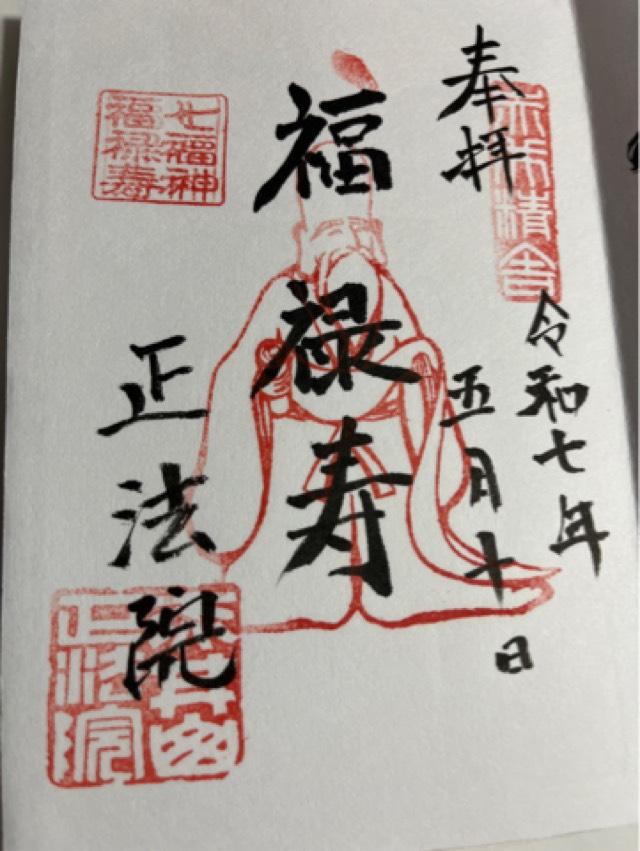 奉拝
令和七年
五月十日
福禄寿
正法院
七福神
福禄寿
正法院